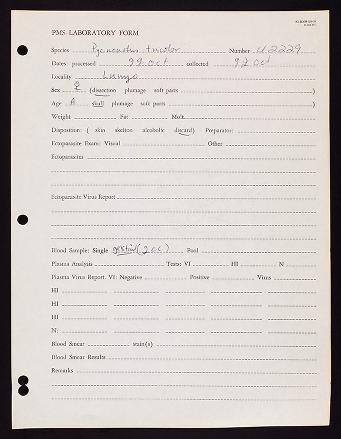 PMS LABORATORY FORM
Species Pycnonotus tricolor Number U2229
Dates: processed 22 Oct collected 22 Oct
Locality
Sex ♀ ( dissection plumage soft parts )
Age A skull plumage soft parts )
Weight Fat Molt
Disposition: ( skin skelton alcoholic discard) Preparator:
Ectoparasite Exam: Visual Other
Ectoparasites
Ectoparasite Virus Report
Blood Sample: Single (2cc) Pool
Plasma Analysis Tests: VI HI N
Plasma Virus Report. VI: Negative Positive Virus
HI
HI
HI
N:
Blood Smear stain(s)
Blood Smear Results
Remarks